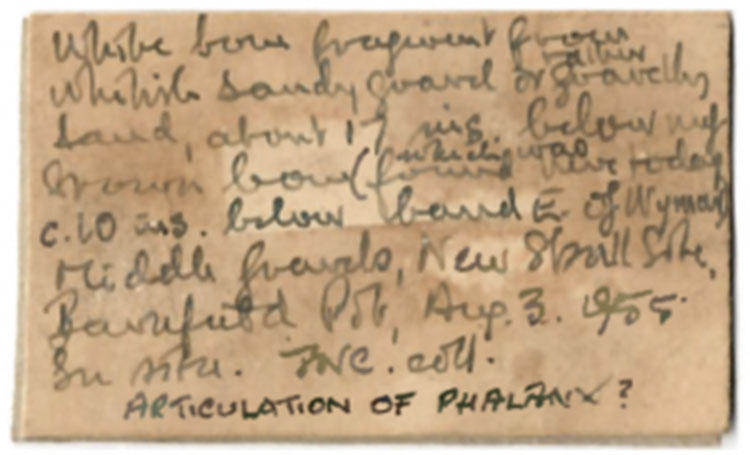 White bone fragment from
whitish sandy gravel or rather gravelly
sand, about 17 ins. below my
brown bone (which was found here today
c. 10 ins. below band E. of Wymer)
Middle Gravels, New Skull Site,
Barnfield Pit, Aug. 3. 1955.
In situ. coll.
ARTICULATION OF PHALANX?